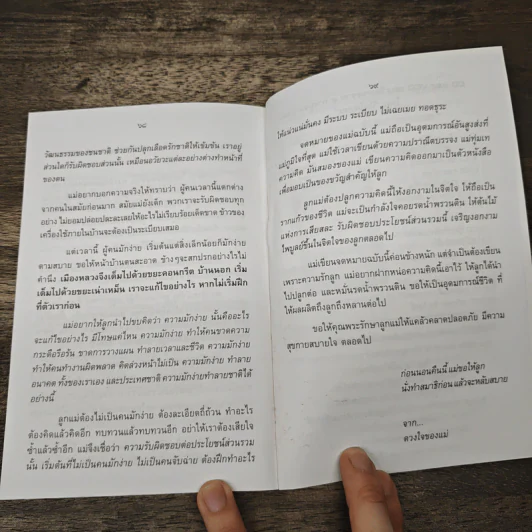 ๖๘
วัฒนธรรมของชนชาติ ช่วยกันปลูกเลือดรักชาติให้เข้มข้น เราอยู่
ส่วนใดก็รับผิดชอบส่วนนั้น เหมือนอวัยวะแต่ละอย่างต่างทำหน้าที่
ของตน
แม่อยากบอกความจริงให้ทราบว่า ผู้คนเวลานี้แตกต่าง
จากคนในสมัยก่อนมาก สมัยแม่ยังเล็ก พวกเราจะรับผิดชอบทุก
อย่าง ไม่ยอมปล่อยปละละเลยให้อะไรไม่เรียบร้อยเด็ดขาด ข้าวของ
เครื่องใช้ภายในบ้านจะต้องเป็นระเบียบเสมอ
แต่เวลานี้ ผู้คนมักง่าย เริ่มต้นแต่สิ่งเล็กน้อยก็มักง่าย
ตามสบาย ขอให้หน้าบ้านตนสะอาด ข้างๆจะสกปรกอย่างไรไม่
คำนึง เมืองหลวงจึงเต็มไปด้วยขยะคอนกรีต บ้านนอก เริ่ม
เต็มไปด้วยขยะเน่าเหม็น เราจะแก้ไขอย่างไร หากไม่เริ่มฝึก
ที่ตัวเราก่อน
แม่อยากให้ลูกนำไปขบคิดว่า ความมักง่าย นั้นคืออะไร
จะแก้ไขอย่างไร มีโทษแค่ไหน ความมักง่าย ทำให้คนขาดความ
กระตือรือร้น ขาดการวางแผน ทำลายเวลาและชีวิต ความมักง่าย
ทำให้คนทำงานผิดพลาด คิดล่วงหน้าไม่เป็น ความมักง่าย ทำลาย
อนาคต ทั้งของเราเอง และประเทศชาติ ความมักง่ายทำลายชาติได้
อย่างนี้
ลูกแม่ต้องไม่เป็นคนมักง่าย ต้องละเอียดถี่ถ้วน ทำอะไร
ต้องคิดแล้วคิดอีก ทบทวนแล้วทบทวนอีก อย่าให้เราต้องเสียใจ
ซ้ำแล้วซ้ำอีก แม่จึงเชื่อว่า ความรับผิดชอบต่อประโยชน์ส่วนรวม
นั้น เริ่มต้นที่ไม่เป็นคนมักง่าย ไม่เป็นคนจับฉ่าย ต้องฝึกทำอะไร
๖๙
ให้แน่วแน่มั่นคง มีระบบ ระเบียบ ไม่เฉยเมย ทอดธุระ
จดหมายของแม่ฉบับนี้ แม่ถือเป็นอุดมการณ์อันสูงส่งที่
แม่ภูมิใจที่สุด แม่ใช้เวลาเขียนด้วยความปราณีตบรรจง แม่ทุ่มเท
ความคิด มันสมองของแม่ เขียนความคิดออกมาเป็นตัวหนังสือ
เพื่อมอบเป็นของขวัญสำคัญให้ลูก
ลูกแม่ต้องปลูกความคิดนี้ให้งอกงามในจิตใจ ให้ถือเป็น
รากแก้วของชีวิต แม่จะเป็นกำลังใจคอยรดน้ำพรวนดิน ให้ต้นไม้
แห่งการเสียสละ รับผิดชอบประโยชน์ส่วนรวมนี้ เจริญงอกงาม
ไพบูลย์ขึ้นในจิตใจของลูกตลอดไป
แม่เขียนจดหมายฉบับนี้ค่อนข้างหนัก แต่จำเป็นต้องเขียน
เพราะความรักลูก แม่อยากฝากหน่อความคิดนี้เอาไว้ ให้ลูกได้นำ
ไปปลูกต่อ และหมั่นรดน้ำพรวนดิน ขอให้เป็นอุดมการณ์ชีวิต ที่
ให้ผลผลิตถึงลูกถึงหลานต่อไป
ขอให้คุณพระรักษาลูกแม่ให้แคล้วคลาดปลอดภัย มีความ
สุขกายสบายใจ ตลอดไป
ก่อนนอนคืนนี้ แม่ขอให้ลูก
นั่งทำสมาธิก่อน แล้วจะหลับสบาย
จาก...
ดวงใจของแม่